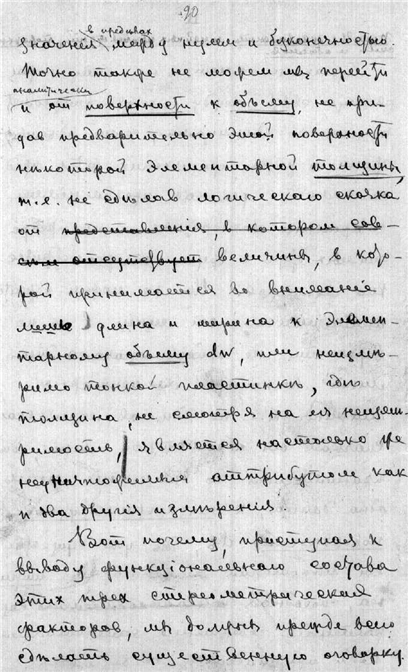 90
въ предѣлахъ
значенія между нулемъ и безконечностью.
Точно также не можемъ мы перейти
аналитически
и от поверхности к объему, не при-
дав предварительно этой поверхности
нѣкоторой элементарной толщины,
т.е. не сдѣлав логическаго скачка
от представленія, в котором сов-
сѣм отсутствует величины, в кото-
рой принимается во вниманіе
лишь длина и ширина к элемен-
тарному объему dw, или неизмѣ-
римо тонкой пластинкѣ, гдѣ
толщина, не смотря на ея неизмѣ-
римость, является настолько же
неуничтожаемым аттрибутом как
и два другія измѣренія.
Вот почему, приступая к
выводу функціональнаго состава
этих трех стереометрических
факторов, мы должны прежде всего
сдѣлать существенную оговорку.